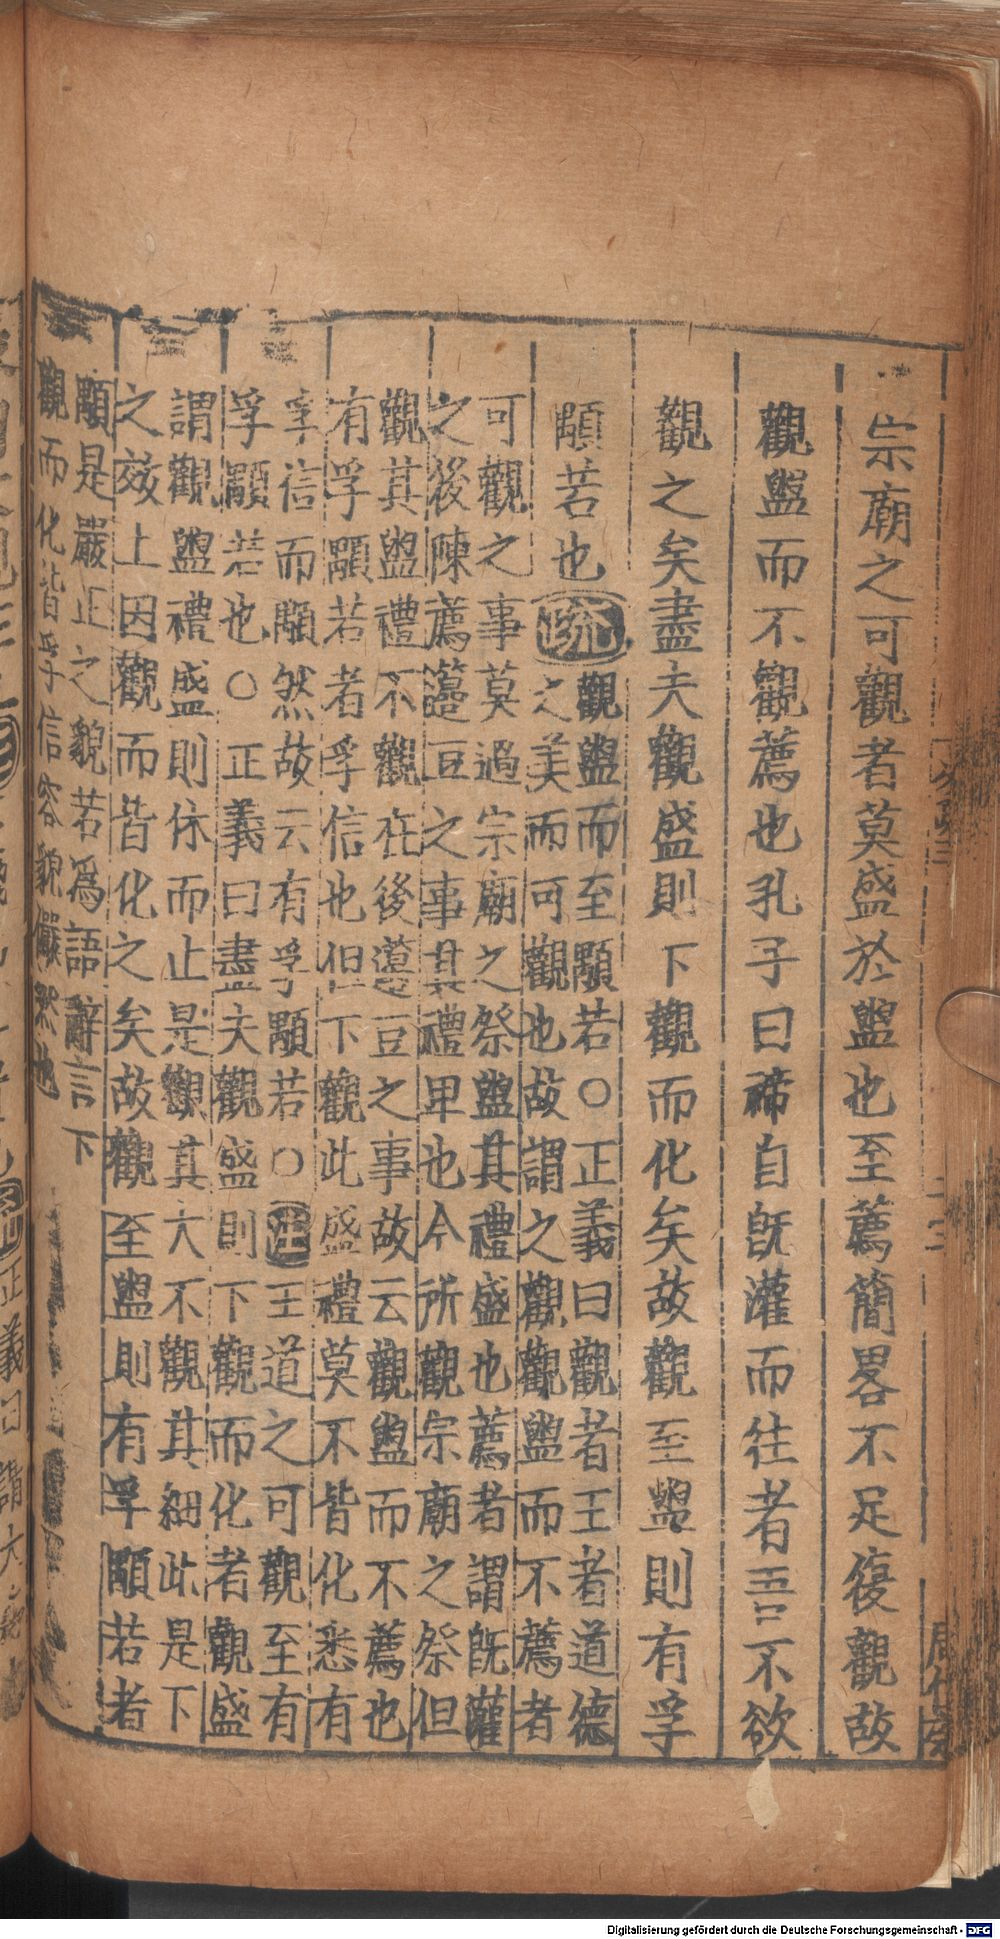 宗廟之可觀者莫盛於盥也至薦簡畧不足復觀故
觀盥而不觀薦也孔子曰禘自旣灌而往者吾不欲
觀之矣盡夫觀盛則下觀而化矣故觀至盥則有孚
顒若也疏觀盥而至顒若○正義曰觀者王者道德
之美而可觀也故謂之觀觀盥而不薦者
可觀之事莫過宗廟之祭盥其禮盛也薦者謂旣灌
之後陳薦籩豆之事其禮卑也今所觀宗廟之祭但
觀其盥禮不觀在後籩豆之事故云觀盥而不薦也
有孚顒若者孚信也但下觀此盛禮莫不皆化悉有
孚信而顒然故云有孚顒若○注王道之可觀至有
孚顒若也○正義曰盡夫觀盛則下觀而化者觀盛
謂觀盥禮盛則休而止是觀其大不觀其細此是下
之效上因觀而皆化之矣故觀至盥則有孚顒若者
顒是嚴正之貌若爲語辭言下
觀而化皆孚信容貌儼然也
Digitalisierung gefördert durch die Deutsche Forschungsgemeinschaft - DFG